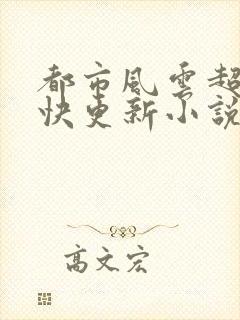 都市風雲超
快更新小說
高文宏